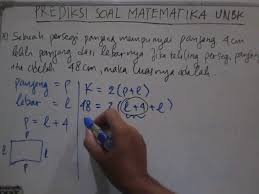 PREDIKSI SOAL MATEMATIKA UNBK
Sebuah persegi panjang mempunyai panjang 4 cm
lebih panjang dari lebarnya jika keliling persegi panjang
itu adalah 48 cm, maka luasnya adalah
panjang = p
lebar = l
p = l + 4
K = 2(p+l)
48 = 2((l+4)+l)
p
l
l
p